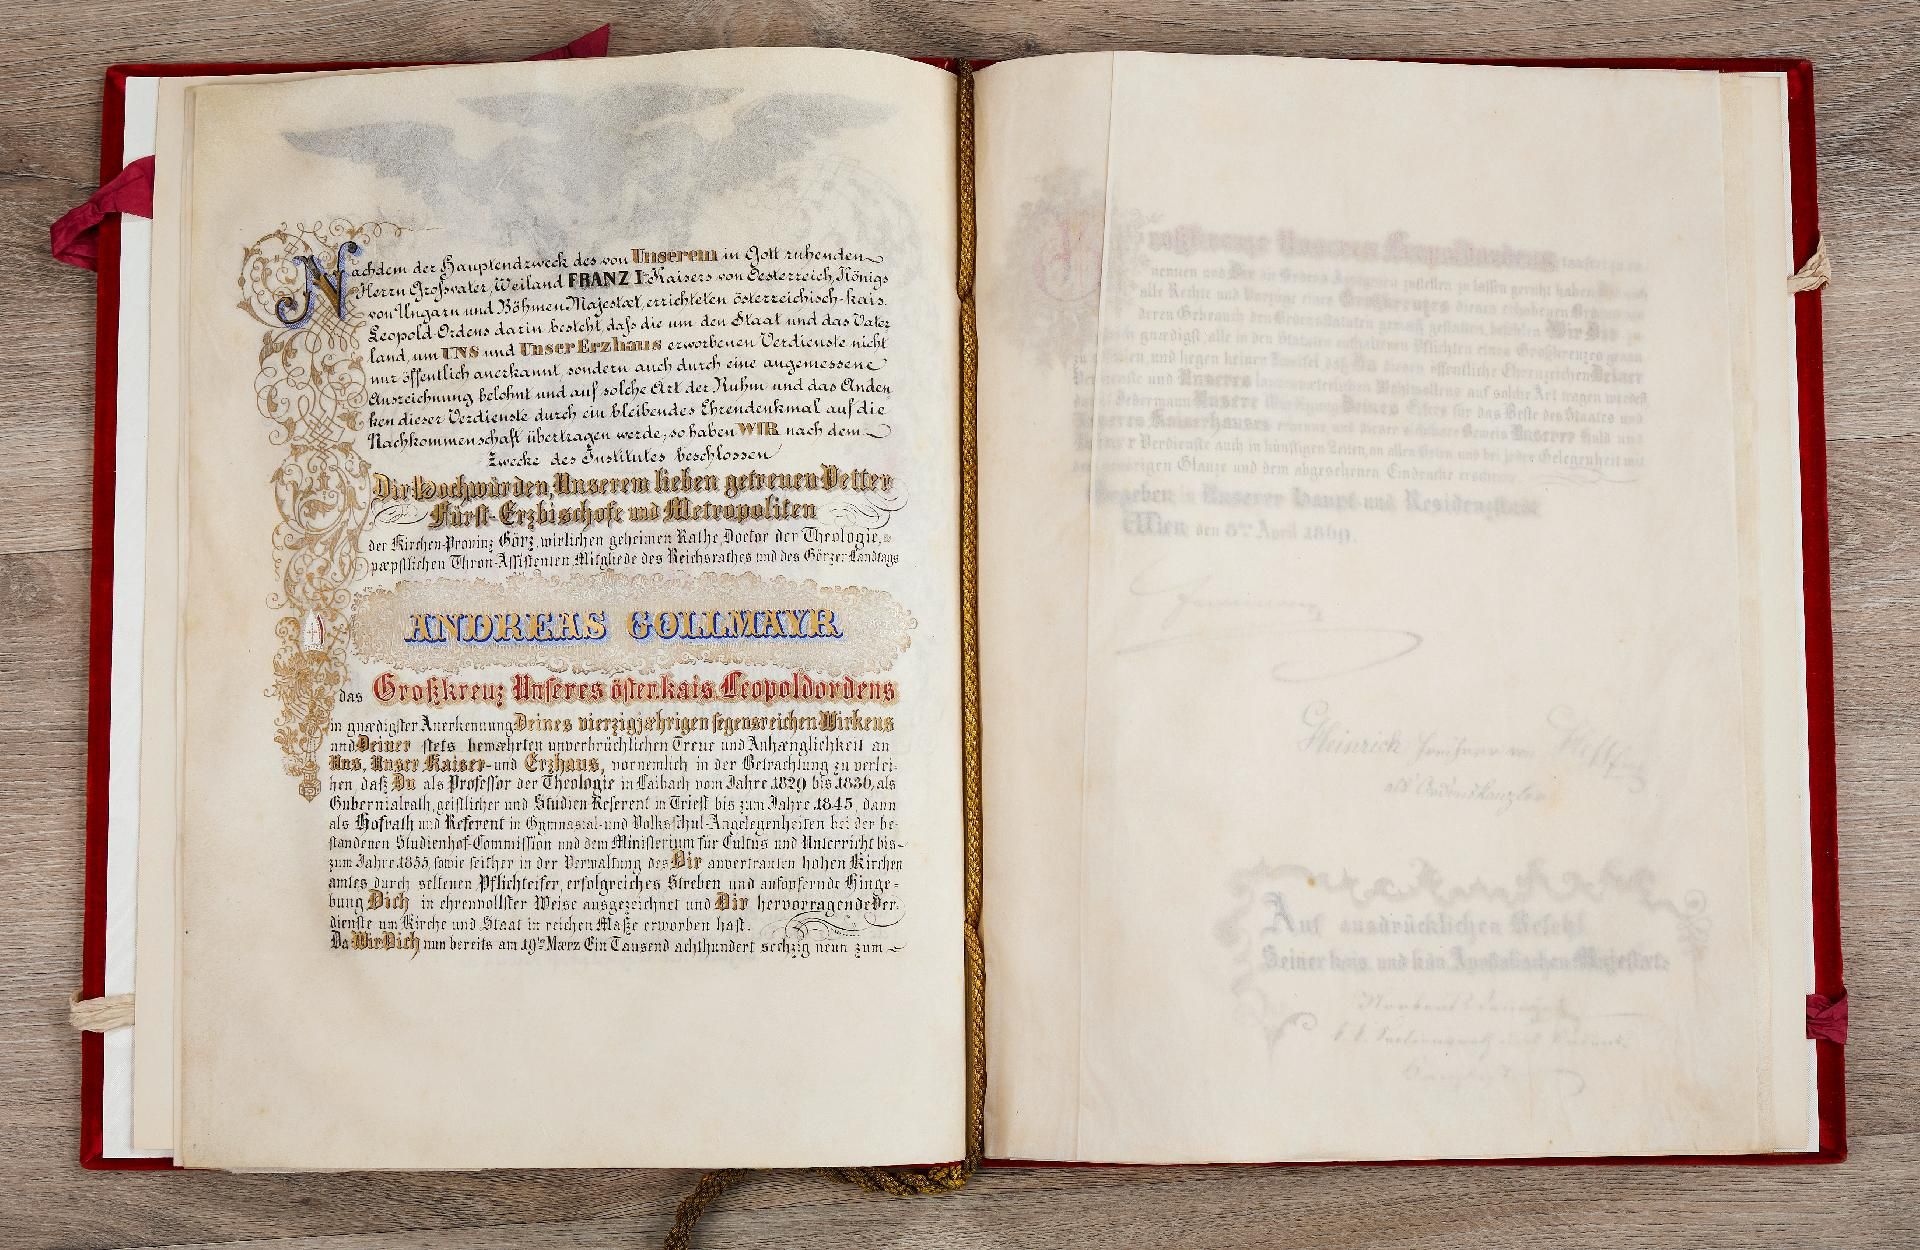 Nachdem der Hauptendzweck des von Unserem in Gott ruhenden
Herrn Großvater, Weiland FRANZ I. Kaisers von Oesterreich, Königs
von Ungarn und Böhmen Majestæt, errichteten österreichisch-kais.
Leopold-Ordens darin besteht, daſs die um den Staat und das Vater
land, um UNS und Unser Erzhaus erworbenen Verdienste nicht
nur öffentlich anerkannt, sondern auch durch eine angemessene
Auszeichnung belohnt und auf solche Art der Ruhm und das Anden
ken dieser Verdienste durch ein bleibendes Ehrendenkmal auf die
Nachkommenschaft übertragen werde; so haben WIR nach dem
Zwecke des Institutes beschlossen
Dir Hochwürden, Unserem lieben getreuen Vetter
Fürst-Erzbischofe und Metropoliten
der Kirchen-Provinz Görz, wirlichen geheimen Rathe, Doctor der Theologie,
pæpstlichen Thron-Assistenten, Mitgliede des Reichsrathes und des Görzer Landtags
ANDREAS GOLLMAYR
das Großkreuz Unseres österr. kais. Leopoldordens
in gnædigster Anerkennung Deines vierzigjæhrigen segensreichen Wirkens
und Deiner stets bewæhrten unverbrüchlichen Treue und Anhænglichkeit an
Uns, Unser Kaiser- und Erzhaus, vornemlich in der Betrachtung zu verlei-
hen, daß Du als Professor der Theologie in Laibach vom Jahre 1829 bis 1836, als
Gubernialrath, geistlicher und Studien-Referent in Triest bis zum Jahre 1845, dann
als Hofrath und Referent in Gymnasial- und Volksschul-Angelegenheiten bei der be-
standenen Studienhof-Commission und dem Ministerium für Cultus und Unterricht bis
zum Jahre 1855, sowie seither in der Verwaltung des Dir anvertrauten hohen Kirchen
amtes durch seltenen Pflichteifer, erfolgreiches Streben und aufopfernde Hinge-
bung Dich in ehrenvollster Weise ausgezeichnet und Dir hervorragende Ver-
dienste um Kirche und Staat in reichen Maße erworben hast.
Da Wir Dich nun bereits am 19ten Mærz Ein Tausend achthundert sechzig neun zum
Großkreuze Unseres Leopoldordens
nennen und Dir die Ordens Insignien zustellen zu lassen geruht haben
alle Rechte und Vorzüge eines Großkreuzes dieses erhabenen Ordens
deren Gebrauch den Ordensstatuten gemäß gestatten, befehlen Wir Dir
gnædigst alle in den Statuten enthaltenen Pflichten eines Großkreuzes genau
und hegen keinen Zweifel daß Du dieses öffentliche Ehrenzeichen Deiner
Verdienste und Unseres Wohlwollens auf solche Art tragen werdest
Jedermann Unsere Würdigung Deines Eifers für das Beste des Staates und
Unseres Kaiserhauses erkenne und dieser Beweis Unserer Huld und
Deiner Verdienste auch in künftigen Zeiten, an allen Orten und bei jeder Gelegenheit mit
Glanze und dem abgesehenen Eindrucke erscheine
Gegeben in Unserer Haupt- und Residenzstadt
Wien den 8ten April 1869.
Heinrich Freiherr von
als Ordenskanzler
Auf ausdrücklichen Befehl
Seiner kais. und kön. Apostolischen Majestæt